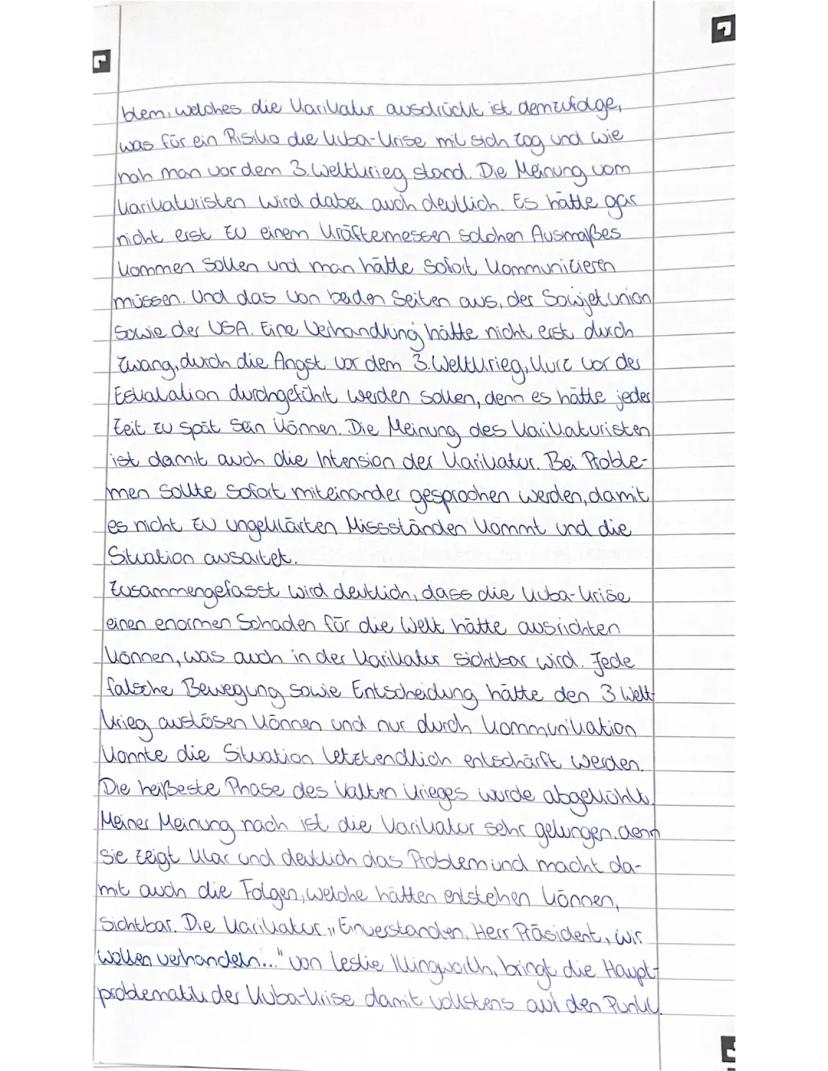 blem, welches die Karikatur ausdrückt ist demzufolge,
was für ein Risiko die Kuba-Krise mit sich zog und wie
nah man vor dem 3. Weltkrieg stand. Die Meinung vom
Karikaturisten wird dabei auch deutlich. Es hätte gar
nicht erst zu einem Kräftemessen solchen Ausmaßes
kommen sollen und man hätte sofort kommunizieren
müssen. Und das von beiden Seiten aus, der Sowjetunion
sowie der USA. Eine Verhandlung hätte nicht erst durch
Zwang, durch die Angst vor dem 3. Weltkrieg, kurz vor der
Eskalation durchgeführt werden sollen, denn es hätte jeder
Zeit zu spät sein können. Die Meinung des Karikaturisten
ist damit auch die Intension der Karikatur. Bei Proble-
men sollte sofort miteinander gesprochen werden, damit
es nicht zu ungeklärten Missständen kommt und die
Situation ausartet.
Zusammengefasst wird deutlich, dass die Kuba-Krise
einen enormen Schaden für die Welt hätte ausrichten
können, was auch in der Karikatur sichtbar wird. Jede
falsche Bewegung sowie Entscheidung hätte den 3 Welt-
krieg auslösen können und nur durch Kommunikation
konnte die Situation letztendlich entschärft werden.
Die heißeste Phase des Kalten Krieges wurde abgekühlt.
Meiner Meinung nach ist die Karikatur sehr gelungen, denn
sie zeigt klar und deutlich das Problem und macht da-
mit auch die Folgen, welche hätten entstehen können,
sichtbar. Die Karikatur „Einverstanden, Herr Präsident, wir
wollen verhandeln..." von Leslie Illingworth, bringt die Haupt-
problematik der Kuba-Krise damit vollstens auf den Punkt.